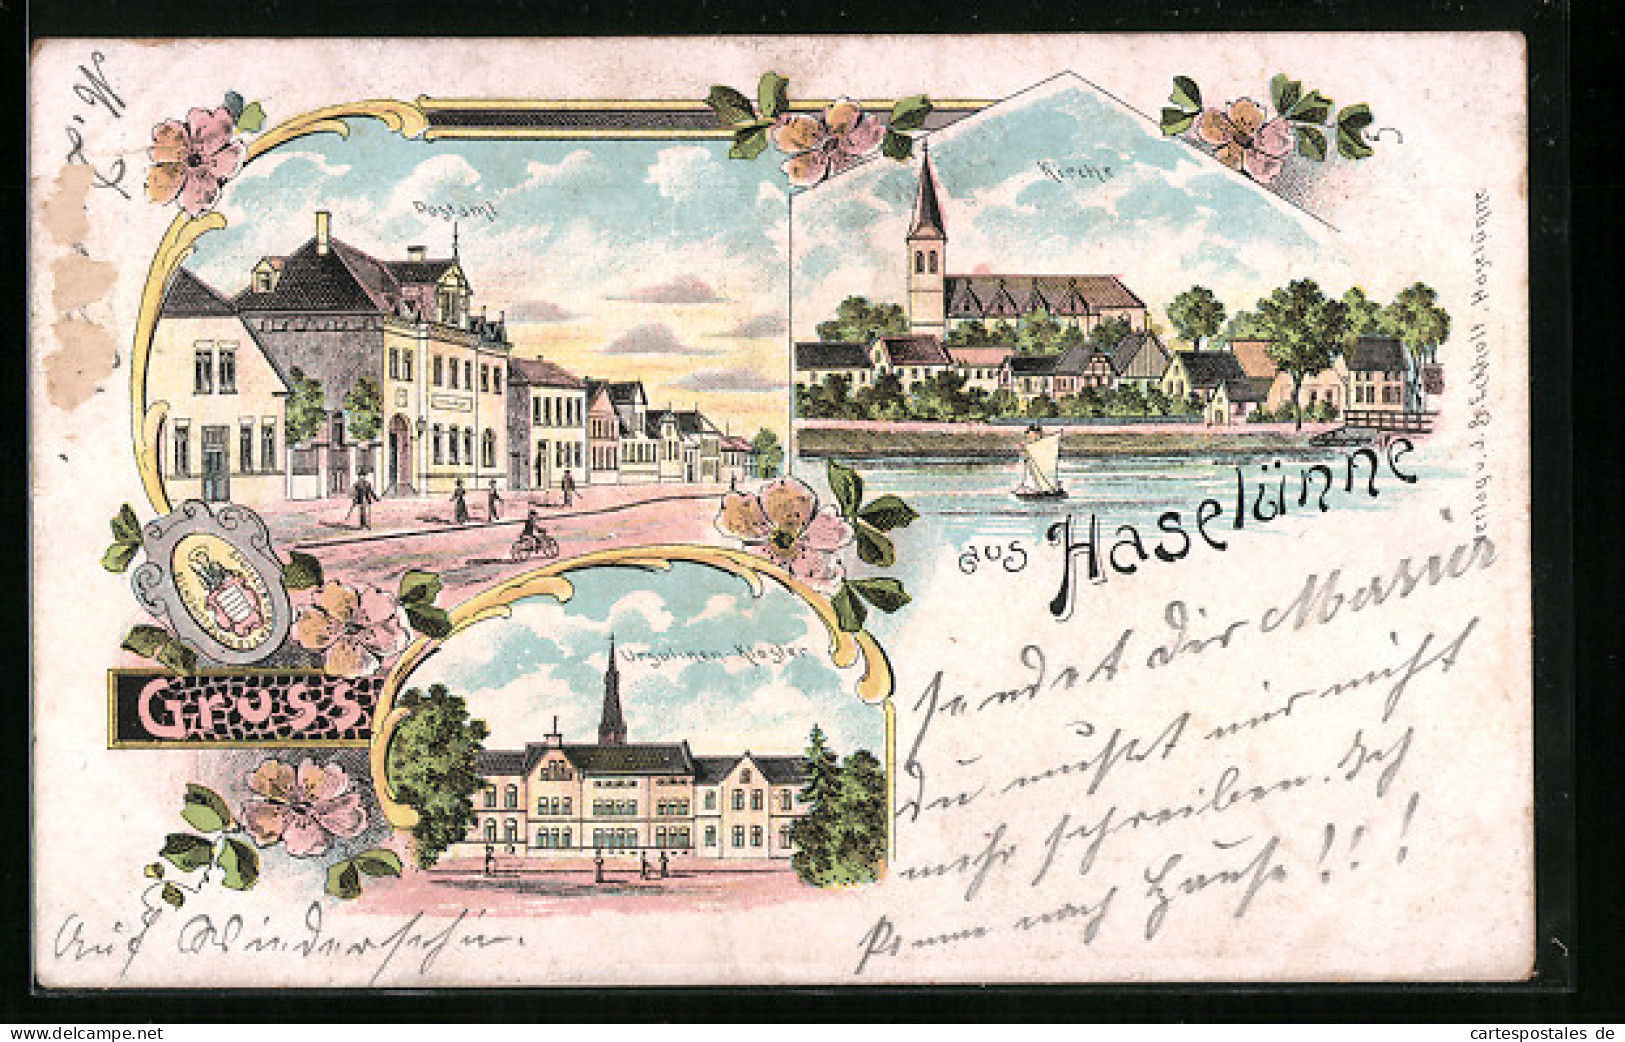 Postamt
Kirche
Ursulinen-Kloster
Gruss
aus Haselünne
Verlag v.
Haselünne
sendet dir
du mußt mir nicht
mehr schreiben. Ich
komme nach Hause!!!
Auf Wiedersehn.
cartespostales de